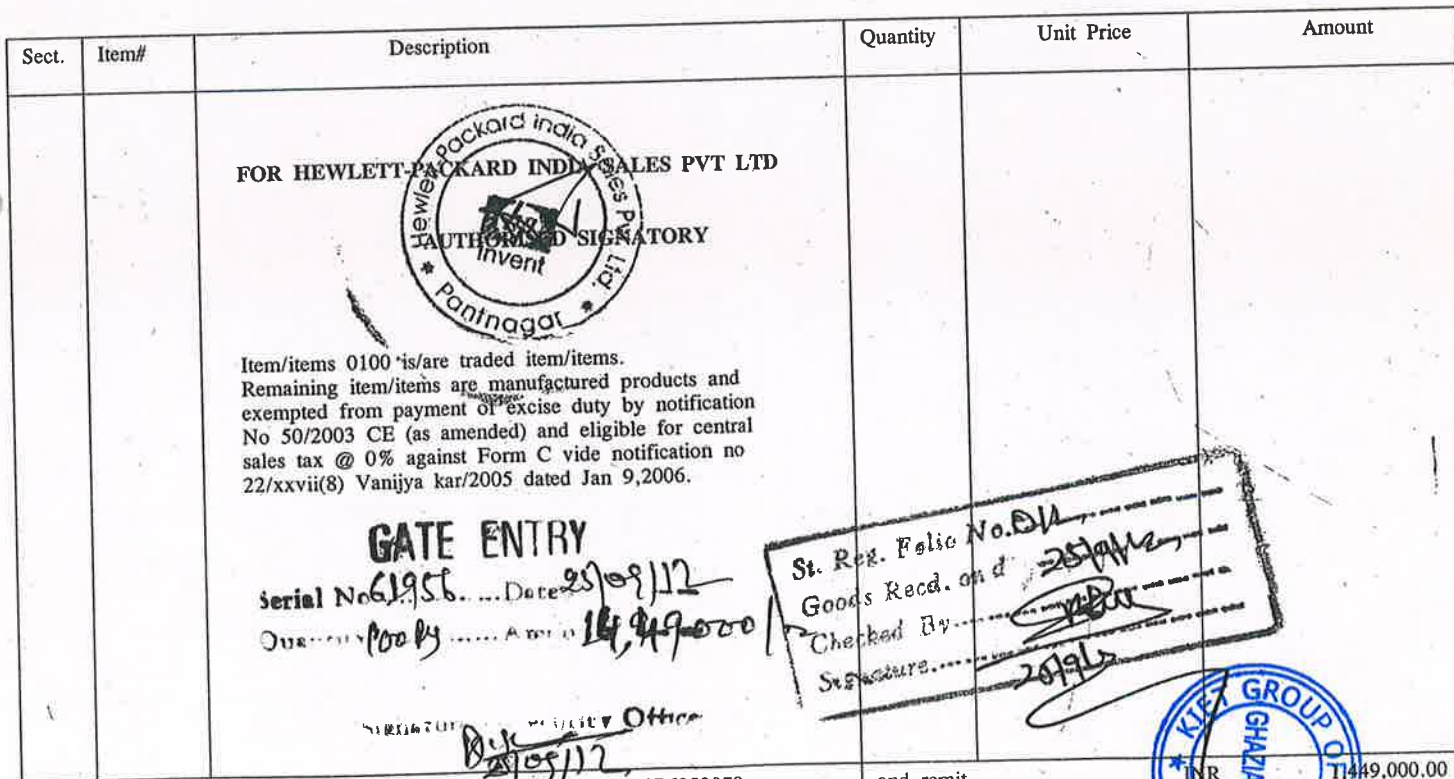 Sect. Item# Description Quantity Unit Price Amount
FOR HEWLETT-PACKARD INDIA SALES PVT LTD
AUTHORISED SIGNATORY
Hewlett-Packard India Sales Pvt. Ltd.
invent
* Pantnagar *
Item/items 0100 is/are traded item/items.
Remaining item/items are manufactured products and
exempted from payment of excise duty by notification
No 50/2003 CE (as amended) and eligible for central
sales tax @ 0% against Form C vide notification no
22/xxvii(8) Vanijya kar/2005 dated Jan 9,2006.
GATE ENTRY
Serial No 61956 Date 25/09/12
14,49,000/-
Office
25/09/12
St. Reg. Folio No.
Goods Recd. on 25/9/12
Checked By
Signature
25/9/12
* KIET GROUP OF
GHAZIA
and remit
INR 11449,000.00